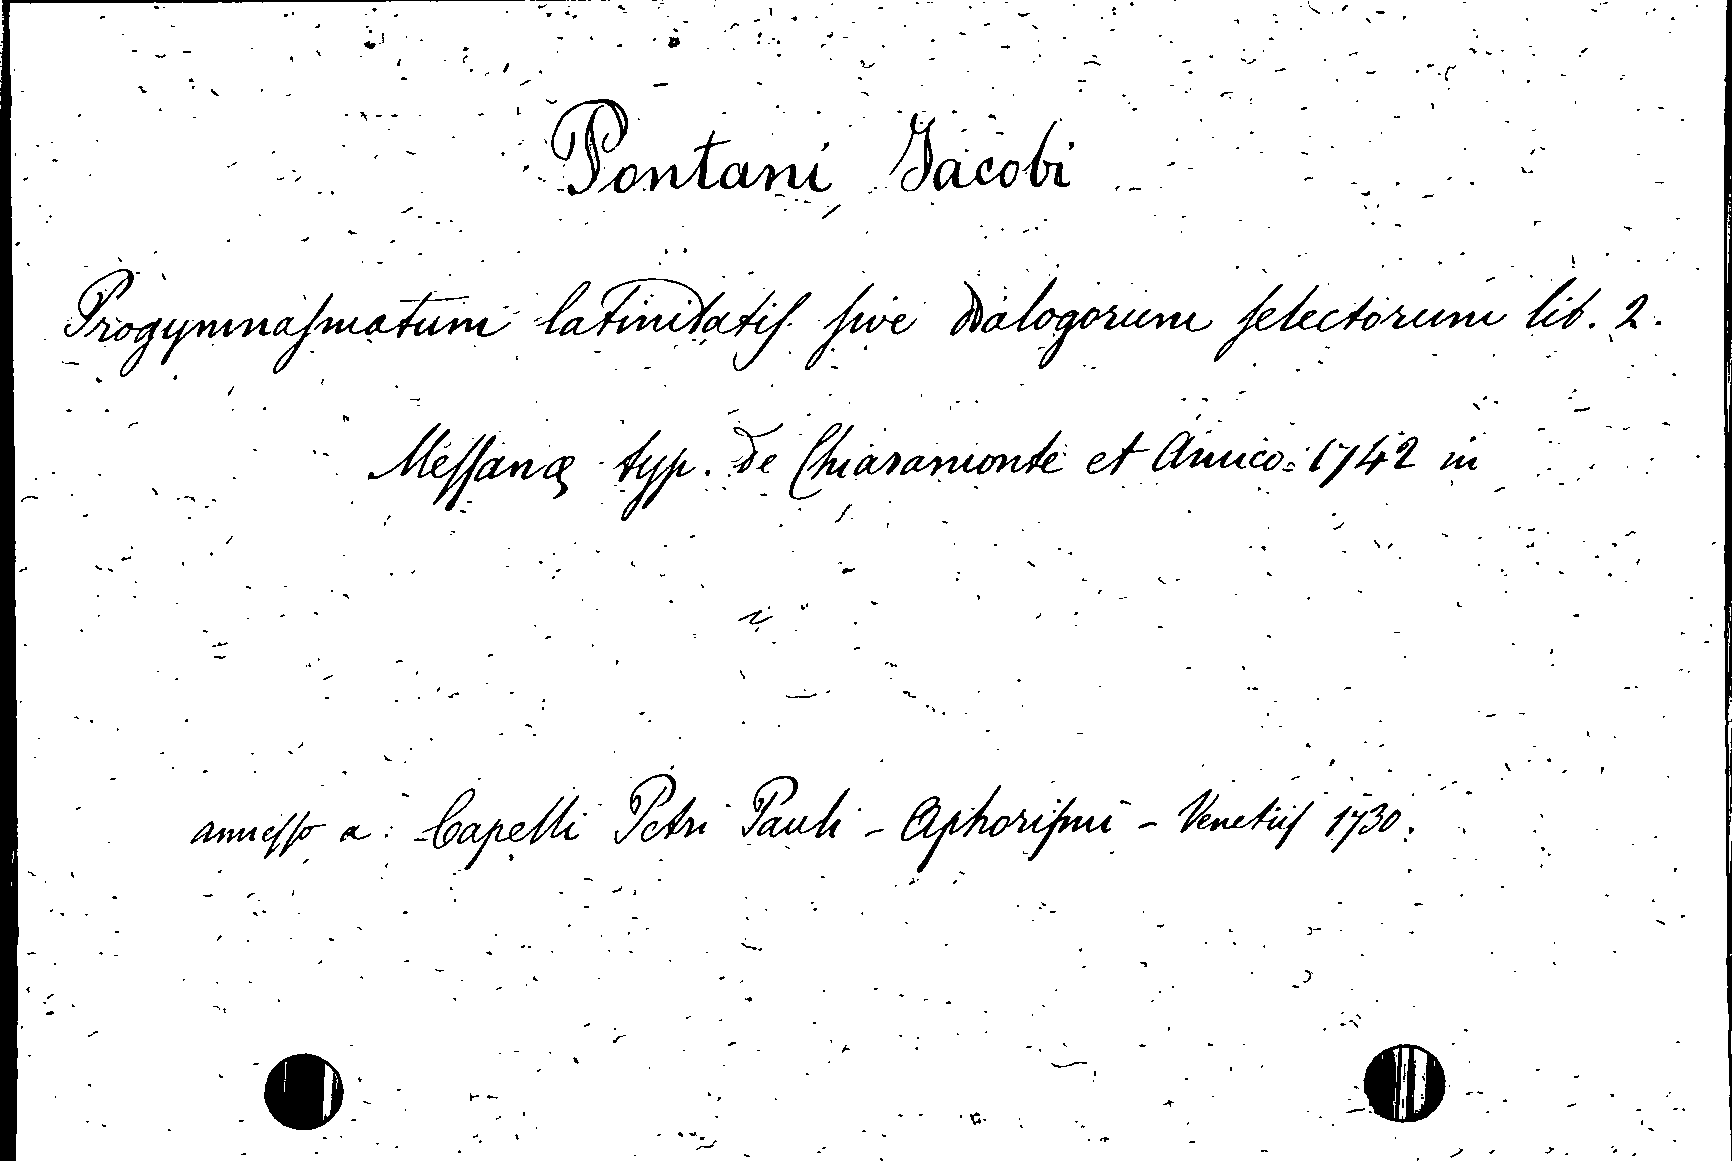 Pontani Jacobi
Progymnaſmatum latinitatiſ ſive dialogorum ſelectorum lib. 2.
Meſſanæ typ. de Chiaramonte et Amico 1742 in
anneſſo a: Capelli Petri Pauli - Aphoriſmi - Venetiiſ 1730.